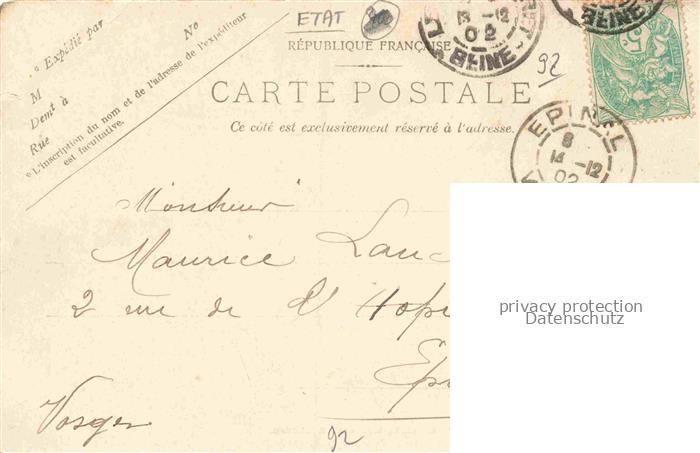 ETAT
RÉPUBLIQUE FRANÇAISE
CARTE POSTALE
Ce côté est exclusivement réservé à l'adresse.
* Expédié par
No
M
Demt à
Rue
* L'inscription du nom et de l'adresse de l'expéditeur
est facultative.
13 -12
02
SEINE
SEINE
5
92
EPINAL
8
14 -12
02
Monsieur
Maurice
2 rue de l'
Vosges
92
privacy protection
Datenschutz